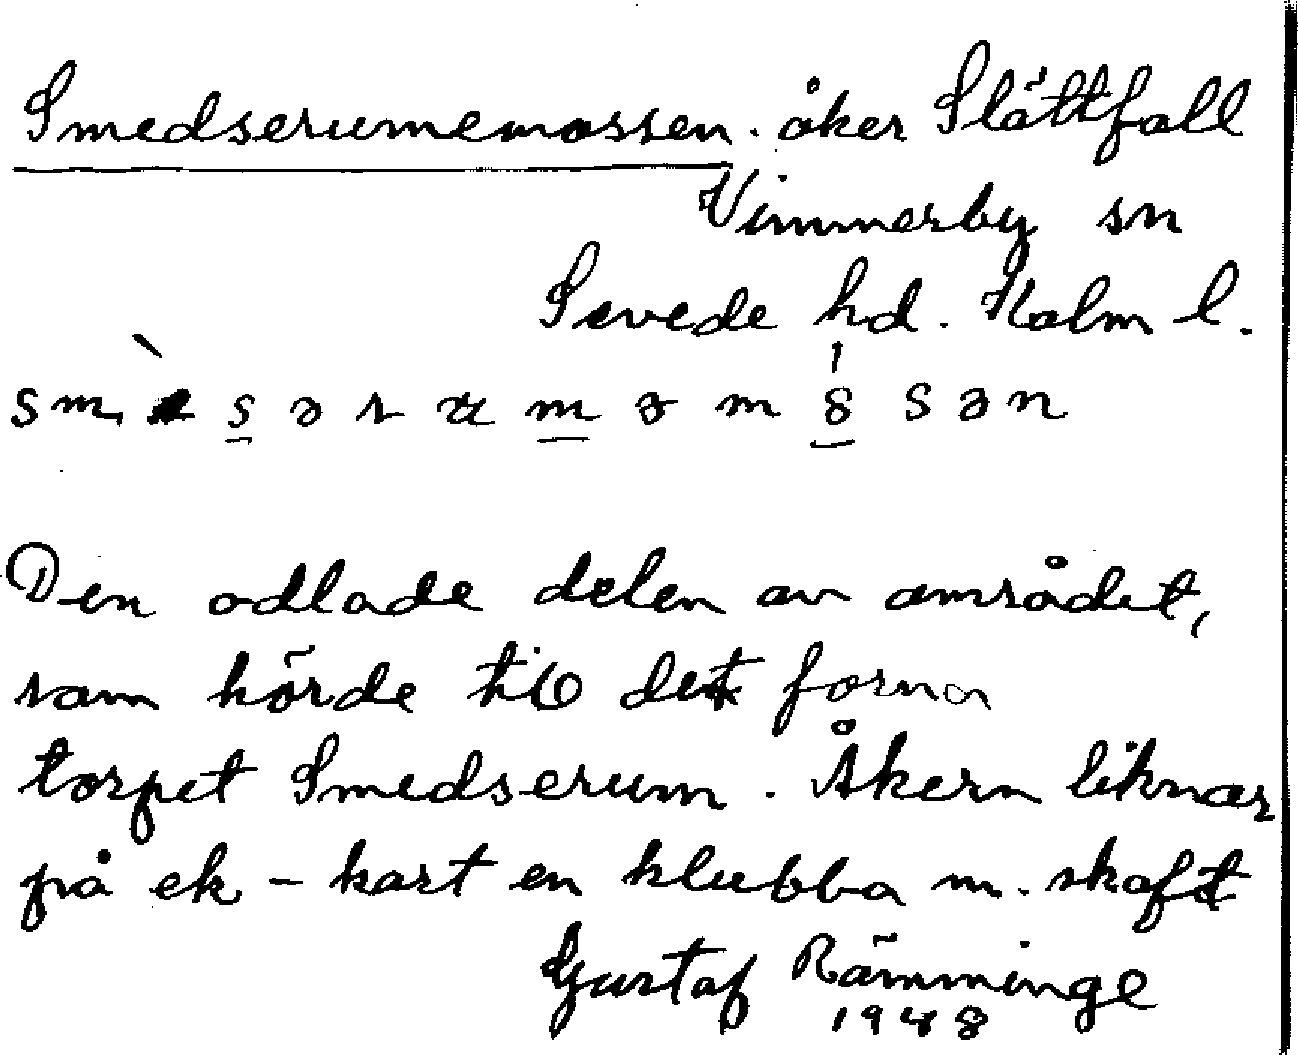 Smedserumemossen. åker Slättfall
Vimmerby sn
Sevede hd. Kalm l.
Den odlade delen av området,
som hörde till det forna
torpet Smedserum. Åkern liknar
på ek-kart en klubba m. skaft
Gustaf Rämminge
1948